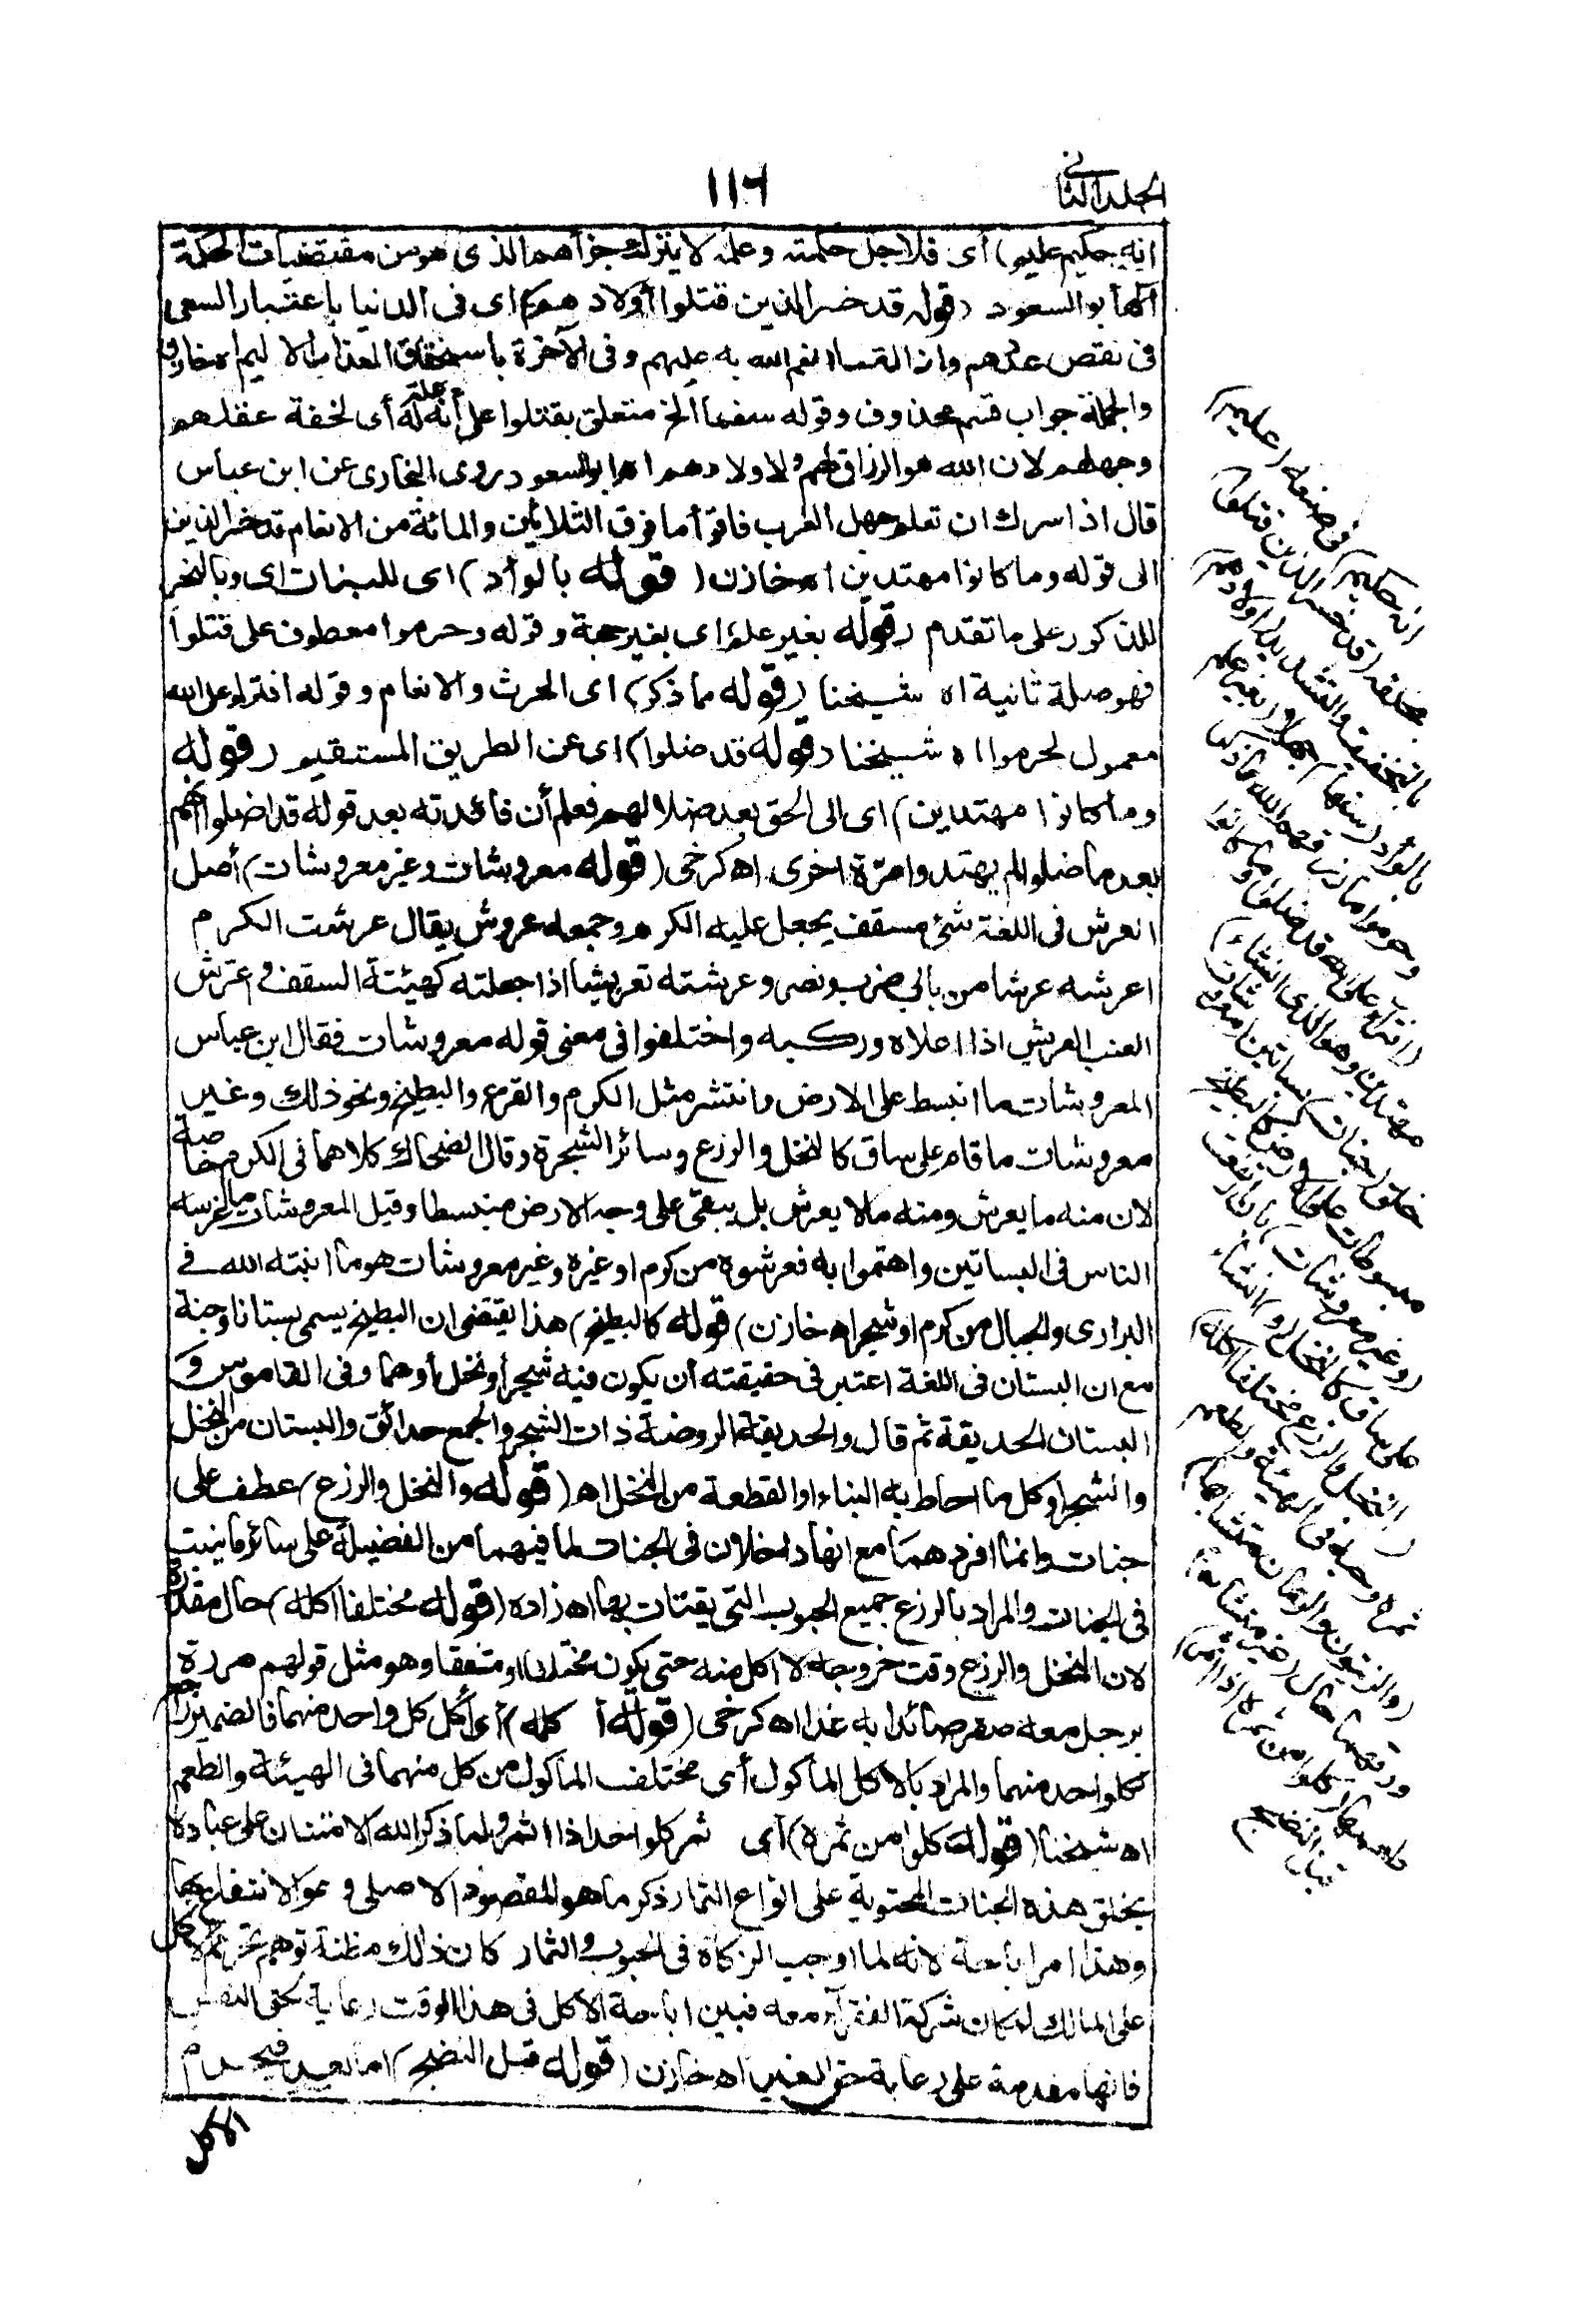 الجلد الثاني
١١٦
انه حكيم عليم) أى فلاجل حكمته وعلمه لا يترك جزأهم الذى هو من مقتضيات الحكمة
اه أبو السعود (قوله قد خسر الذين قتلوا أولادهم) اى فى الدنيا باعتبار السعى
فى نقص عددهم وازالة ما انعم الله به عليهم وفى الآخرة باستحقاق العذاب الاليم اه خازن
والجملة جواب قسم محذوف وقوله سفها الخ متعلق بقتلوا على أنه علة له أى لخفة عقلهم
وجهلهم لان الله هو الرزاق لهم ولاولادهم اه ابو السعود روى البخارى عن ابن عباس
قال اذا سرك ان تعلم جهل العرب فاقرأ ما فوق الثلاثين والمائة من الانعام قد خسر الذين
الى قوله وما كانوا مهتدين اه خازن (قوله بالوأد) اى للبنات اى وبالنحر
للذكور على ما تقدم (قوله بغير علم) اى بغير حجة وقوله وحرموا معطوف على قتلوا
فهو صلة ثانية اه شيخنا (قوله مما ذكر) اى الحرث والانعام وقوله افتراء على الله
معمول لحرموا اه شيخنا (قوله قد ضلوا) اى عن الطريق المستقيم (قوله
وما كانوا مهتدين) اى الى الحق بعد ضلالهم فعلم أن فائدته بعد قوله قد اضلوا انهم
بعد ما ضلوا لم يهتدوا مرّة اخرى اه كرخى (قوله معروشات وغير معروشات) أصل
العرش فى اللغة شئ مسقف يجعل عليه الكرم وجمعه عروش يقال عرشت الكرم
اعرشه عرشا من بابى ضرب ونصر وعرشته تعريشا اذا جعلته كهيئة السقف واعترش
العنب العريش اذا اعلاه وركبه واختلفوا فى معنى قوله معروشات فقال ابن عباس
المعروشات ما انبسط على الارض وانتشر مثل الكرم والقرع والبطيخ ونحو ذلك وغير
معروشات ما قام على ساق كالنخل والزرع وسائر الشجرة وقال الضحاك كلاهما فى الكرم خاصة
لان منه ما يعرش ومنه مالا يعرش بل يبقى على وجه الارض منبسطا وقيل المعروشات ما غرسه
الناس فى البساتين واهتموا به فعرشوه من كرم او غيره وغير معروشات هو ما انبته الله فى
البرارى والجبال من كرم او شجر اه خازن) قوله كالبطيخ) هذا يقتضى ان البطيخ يسمى بستانا وجنة
مع ان البستان فى اللغة اعتبر فى حقيقته أن يكون فيه شجر أو نخل أو هما وفى القاموس و
البستان الحديقة ثم قال والحديقة الروضة ذات الشجر والجمع حدائق والبستان من النخل
والشجر او كل ما احاط به البناء او القطعة من النخل اه (قوله والنخل والزرع) عطف على
جنات وانما افردهما مع انهما داخلان فى الجنات لما فيهما من الفضيلة على سائر ما ينبت
فى الجنات والمراد بالزرع جميع الحبوب التى يقتات بها اه زاده (قوله مختلفا اكله) حال مقدرة
لان النخل والزرع وقت خروجه لا اكل منه حتى يكون مختلفا او متفقا وهو مثل قولهم مررت
برجل معه صقر صائدا به غدا اه كرخى (قوله أ كله) أى أكل كل واحد منهما فالضمير راجع
لكل واحد منهما والمراد بالاكل المأكول أى مختلف المأكول من كل منهما فى الهيئة والطعم
اه شيخنا (قوله كلوا من ثمره) أى ثمر كل واحد اذا اثمر ولما ذكر الله الامتنان على عباده
بخلق هذه الجنات المحتوية على انواع الثمار ذكر ما هو المقصود الاصلى وهو الانتفاع بها
وهذا امر اباحة لانه لما اوجب الزكاة فى الحبوب والثمار كان ذلك مظنة توهم تحريم الاكل
على المالك لمكان شركة الفقراء معه فبين اباحة الاكل فى هذا الوقت رعاية لحق النفس
فانها مقدمة على رعاية حق الغير اه خازن (قوله قبل النضج) اما بعده فيحرم
الاكل
انه حكيم) فى صنعه (عليم)
بخلقه (قد خسر الذين قتلوا)
بالتخفيف والتشديد (اولادهم)
بالوأد (سفها) جهلا (بغير علم
وحرموا ما رزقهم الله) مما ذكر
(افتراء على الله قد ضلوا وما كانوا
مهتدين وهو الذى انشاء)
خلق (جنات) بساتين (معروشات)
مبسوطات على الارض كالبطيخ
(وغير معروشات) بان ارتفعت
على ساق كالنخل (و) انشاء
(النخل والزرع مختلفا اكله)
ثمره وحبه فى الهيئة والطعم
(والزيتون والرمان متشابها)
ورقهما حال (وغير متشابه)
طعمهما (كلوا من ثمره اذا اثمر)
قبل النضج